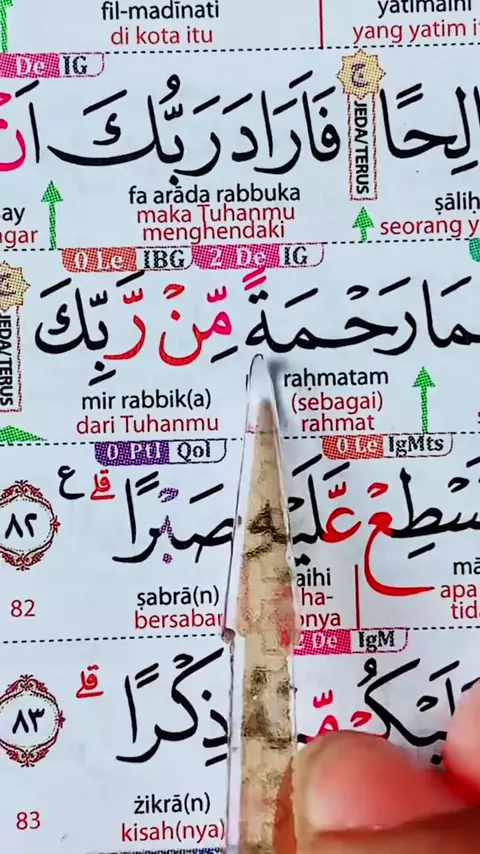 fil-madīnati yatīmaini
di kota itu yang yatim
2 De IG
لِحًا ۖ فَاَرَادَ رَبُّكَ اَنْ
JEDA/TERUS
fa arāda rabbuka
maka Tuhanmu menghendaki seorang
0 Le IBG 2 De IG
مَا رَحْمَةً مِّنْ رَّبِّكَ
JEDA/TERUS
raḥmatam mir rabbik(a)
(sebagai) rahmat dari Tuhanmu
0 PU Qol 0 Le IgMts
سْطِعْ عَّلَيْهِ صَبْرًا ۗ ع ٨٢
ṣabrā(n)
82 bersabar
De IgM
ذِكْرًا ۗ ٨٣
żikrā(n)
83 kisah(nya)